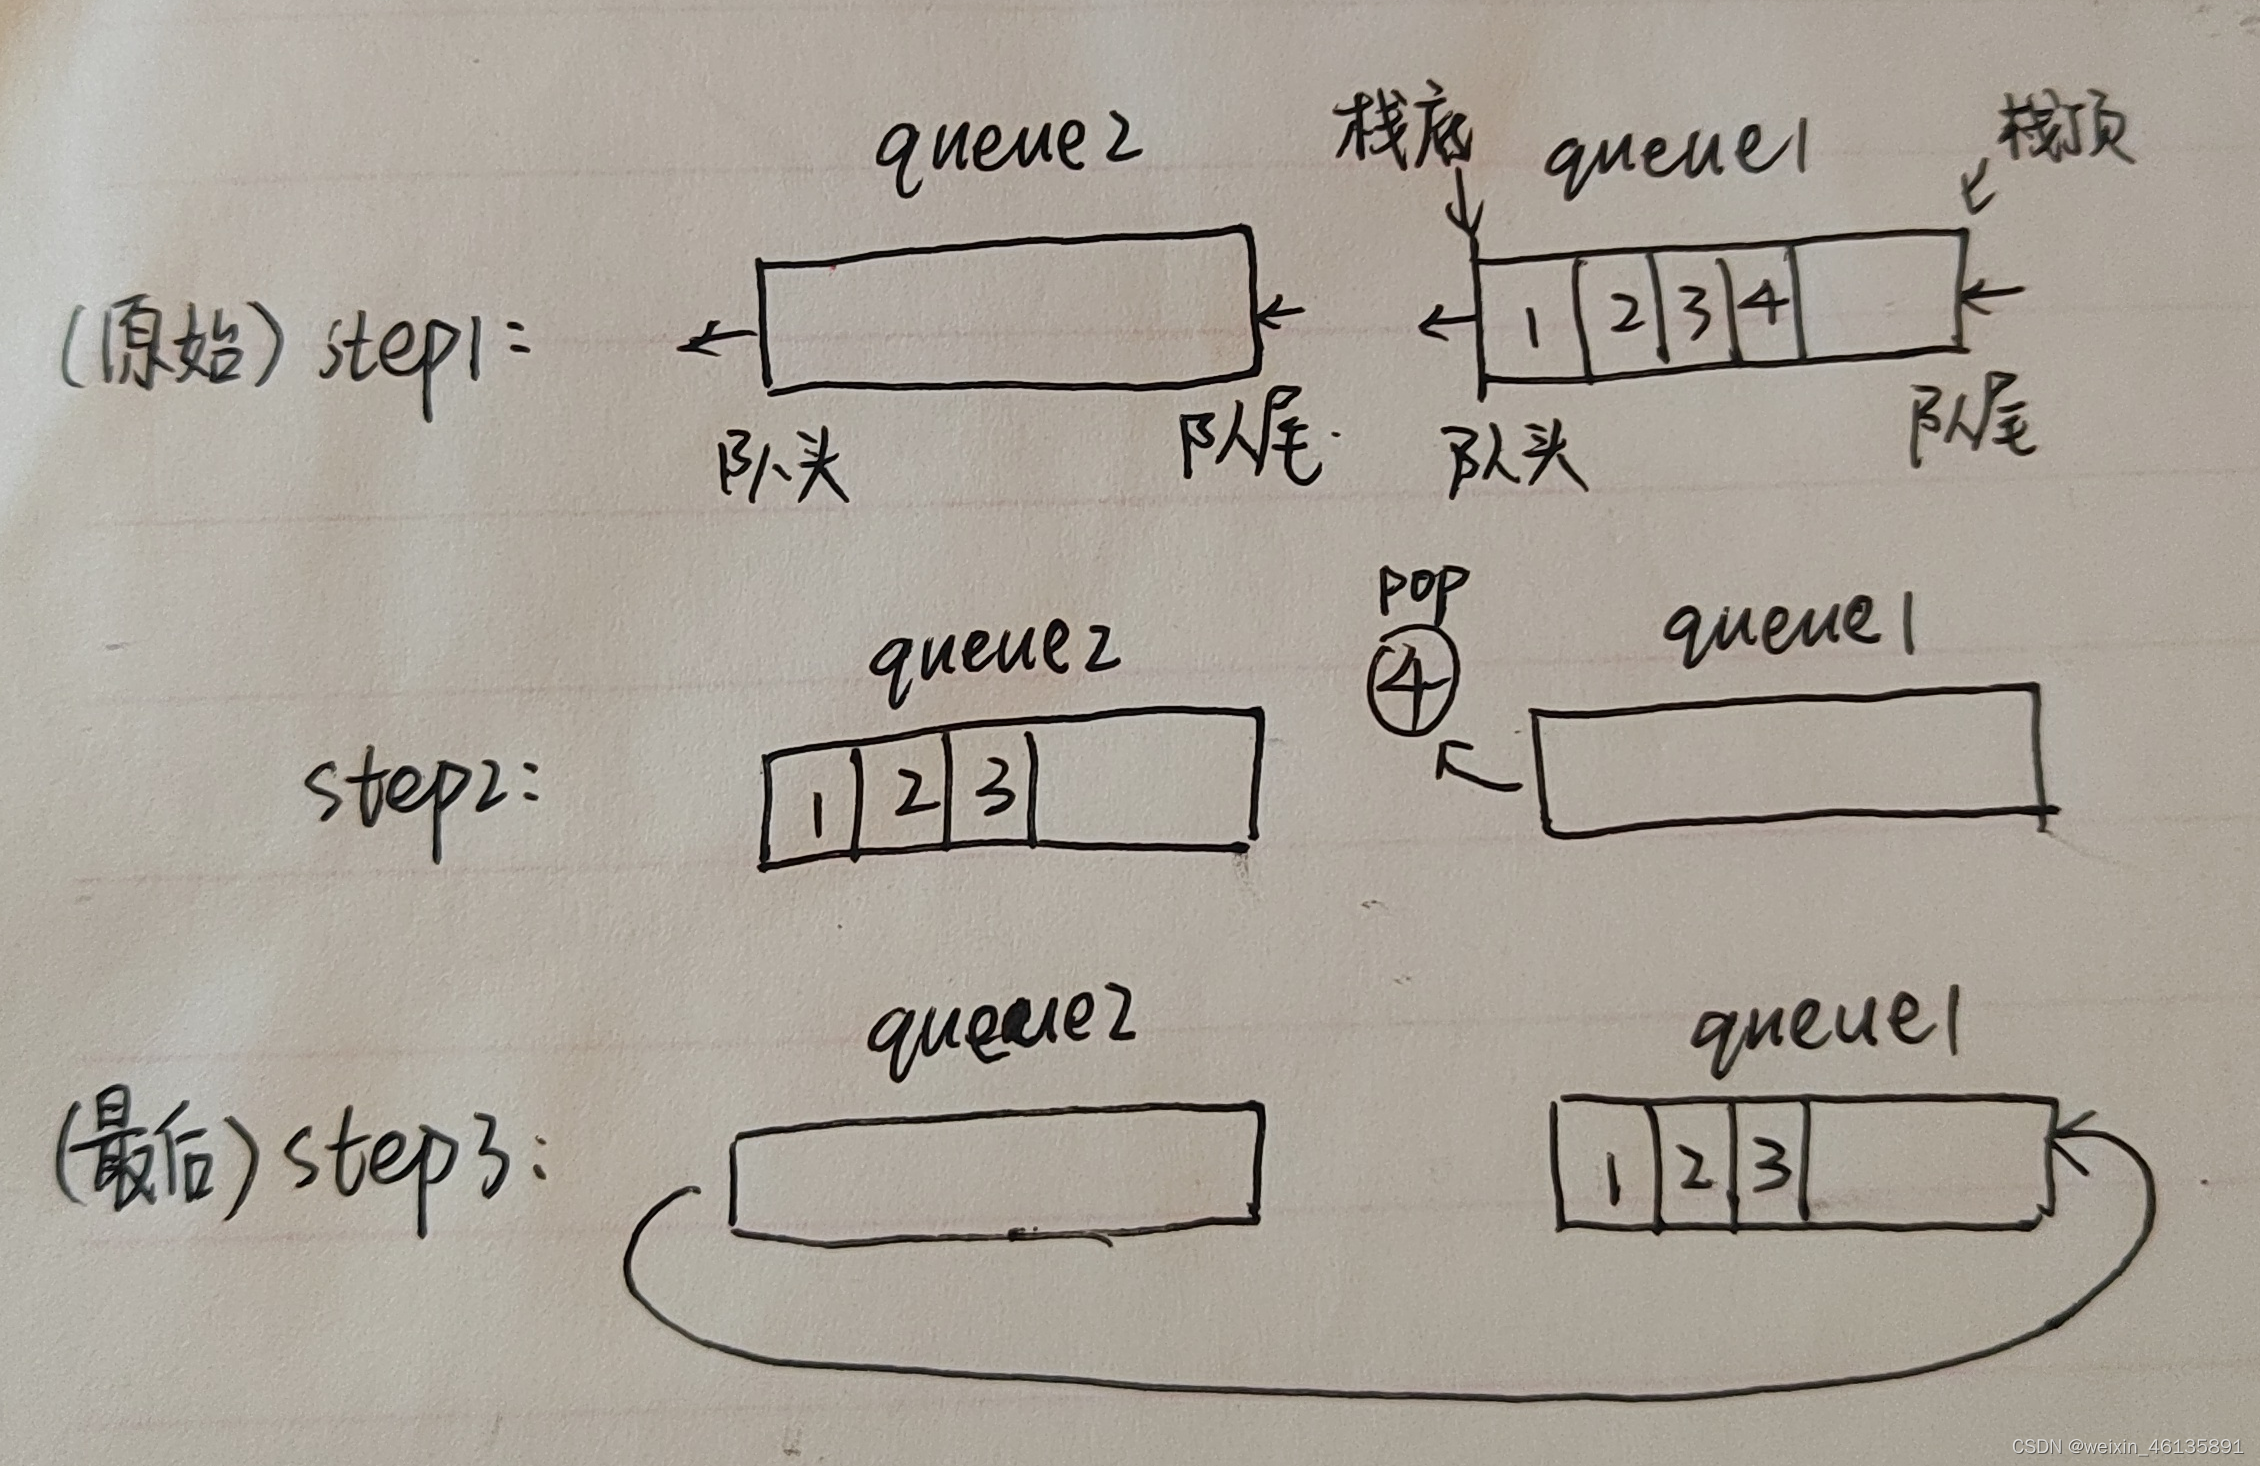 queue2 栈底 queue1 栈顶
(原始) step1:
1 2 3 4
队头 队尾. 队头 队尾
pop
queue2 ④ queue1
step2:
1 2 3
queue2 queue1
(最后) step3:
1 2 3
CSDN @weixin_46135891